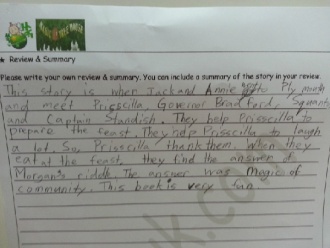 ★ Review & Summary
Please write your own review & summary. You can include a summary of the story in your review.
This story is when Jack and Annie go to Plymouth
and meet Prisscilla, Governor Bradford, Squanto
and Captain Standish. They help Prisscilla to
prepare the feast. They help Prisscilla to laugh
a lot. So, Prisscilla thank them. When they
eat at the feast, they find the answer of
Morgan's riddle. The answer was magic of
community. This book is very fun.